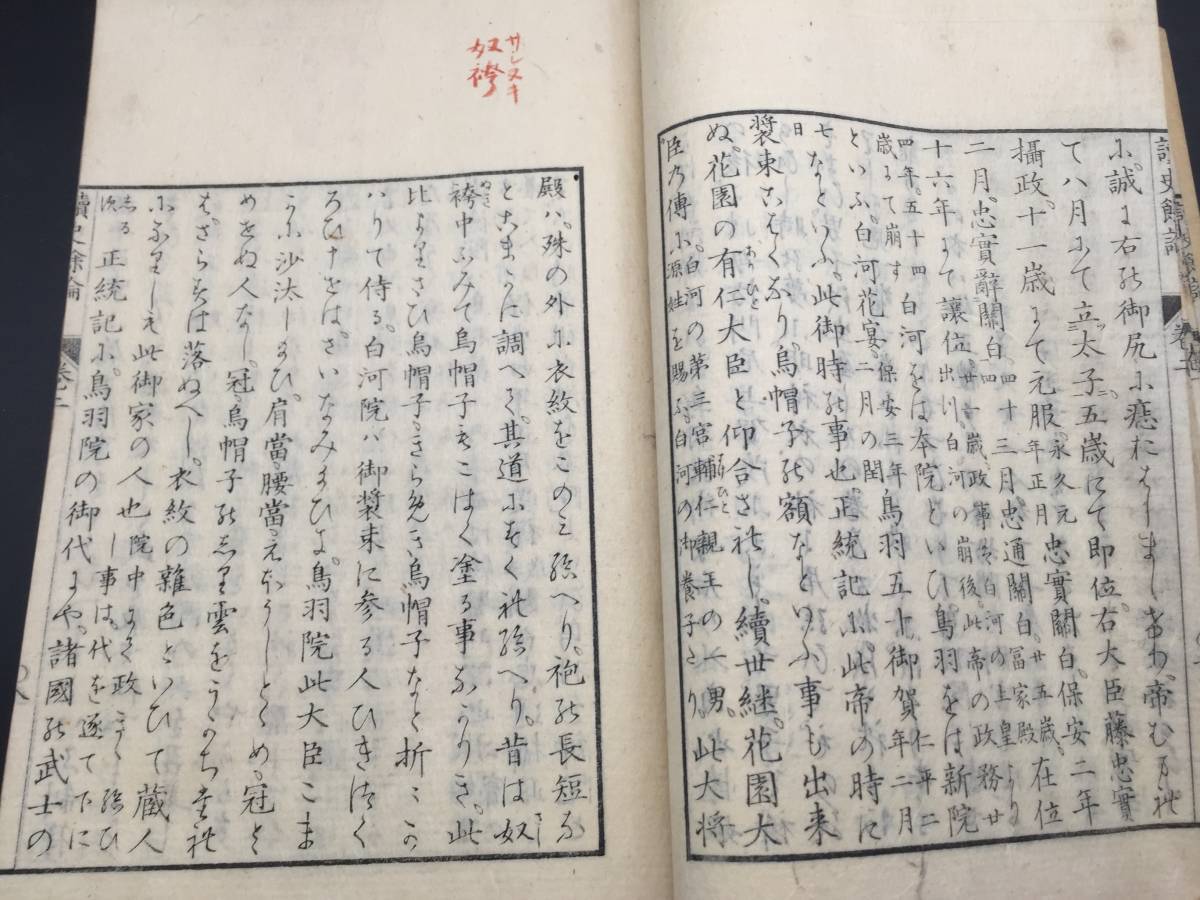 に。誠に右の御尻に痣おはしましけり。帝むまれ
て八月にて立太子五歳にて即位。右大臣藤忠實
攝政十一歳にて元服。永久元年正月忠實關白。保安二年
二月。忠實辭關白。四十三月忠通關白。廿五歳。在位
十六年にて讓位。白河の崩後。此帝の政務廿
四年。五十四歳にて崩す白河をは本院といひ鳥羽をは新院
といふ。白河花宴。二月の閏保安三年鳥羽五十御賀仁平二年二月
七日なといふ。此御時の事也。正統記に。此帝の時に
裝束こはくなり。烏帽子の額なといふ事も出来
ぬ。花園の有仁大臣と仰合されし。續世継。花園大
臣の傳に源姓を賜ふ。白河の御養子たり。白河の第三宮輔仁親王の一男。此大将
殿ハ。殊の外に衣紋をこのミ給へり。袍の長短な
とこまかに調へて。其道にすくれ給へり。昔は奴
袴中ふみて烏帽子もこはく塗る事なかりき。此
比よりさひ烏帽子。きらめき烏帽子なと折ミか
ハりて侍る。白河院ハ御裝束に参る人ひきつく
ろひけをは。さいなみたまひき。鳥羽院此大臣こま
かに沙汰したまひ。肩當。腰當。えほうしとゝめ。冠と
めせぬ人なし。冠烏帽子のしり雲をうかちたれ
は。さらすは落ぬへし。衣紋の雜色といひて蔵人
になりしも此御家の人也。院中にて政きこし給ひし事は。代を逐て下に
正統記に。鳥羽院の御代にや。諸國の武士の
サシヌキ
奴袴
讀史餘論
卷二